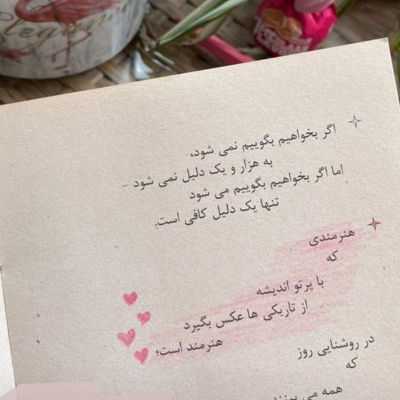 Elegance
اگر بخواهیم بگوییم نمی شود،
به هزار و یک دلیل نمی شود -
اما اگر بخواهیم بگوییم می شود
تنها یک دلیل کافی است.
هنرمندی
که
با پرتو اندیشه
از تاریکی ها عکس بگیرد
هنرمند است؛
در روشنایی روز
که
همه می بینند